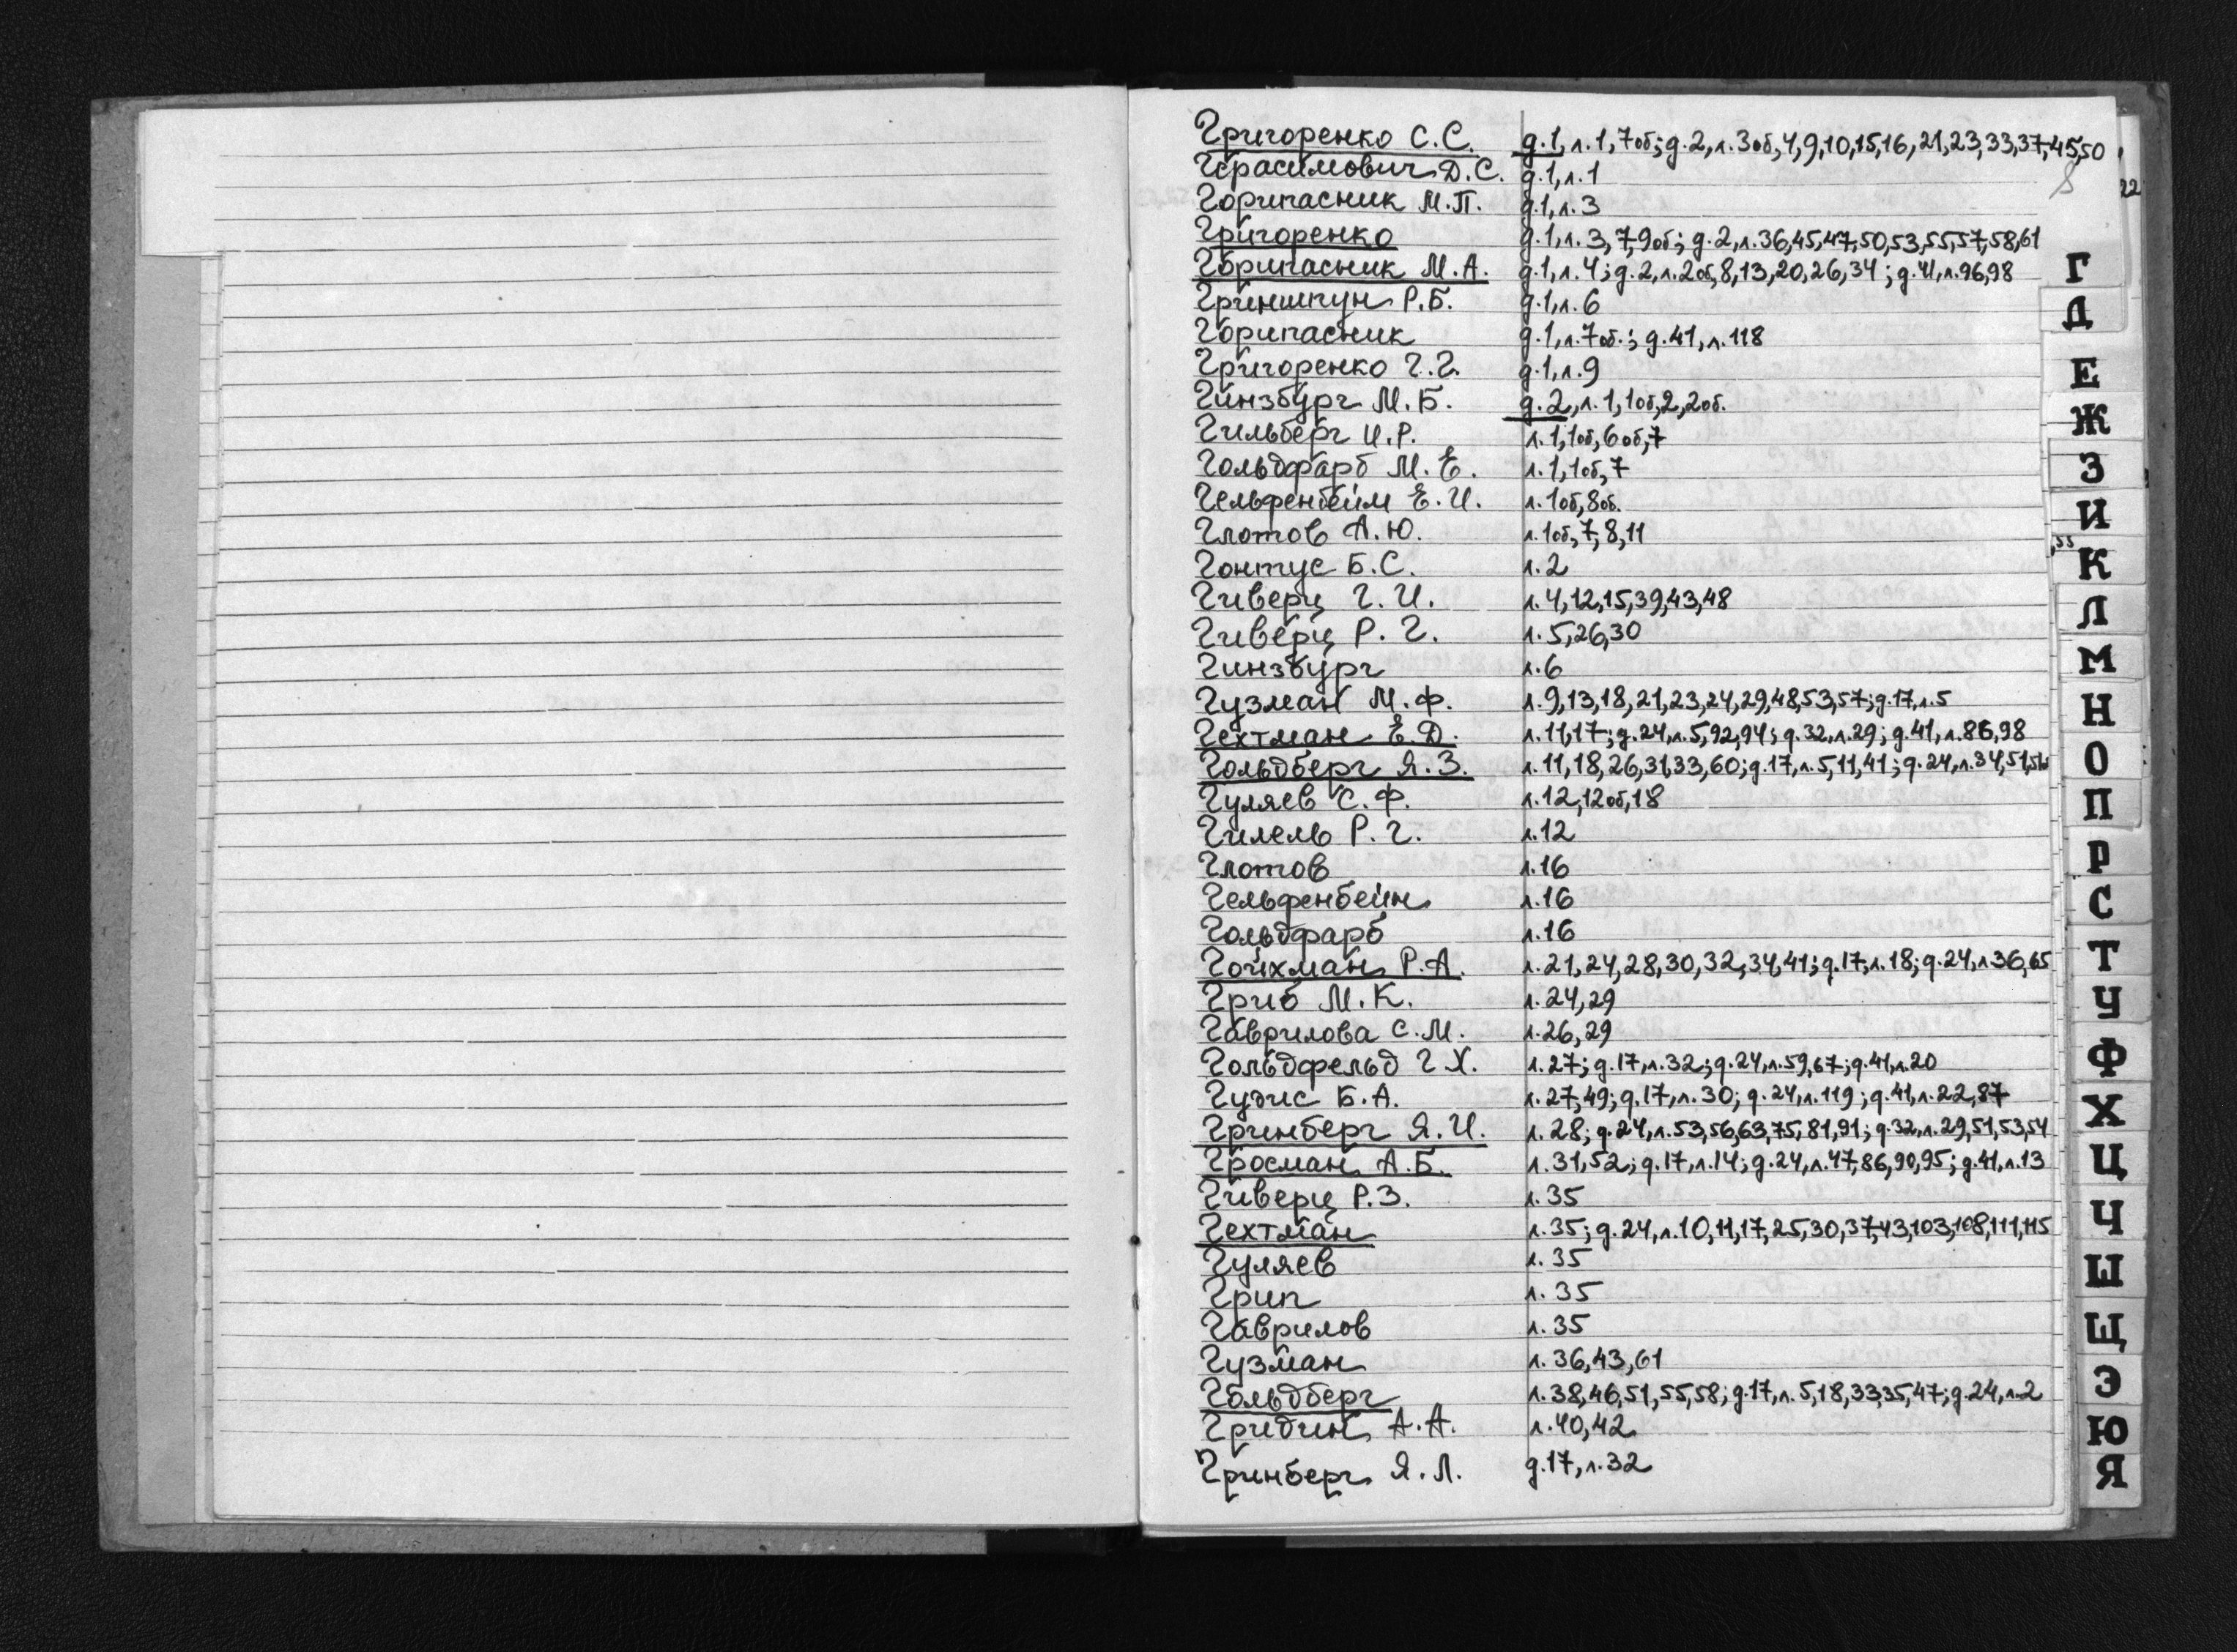 Григоренко С.С. д.1, л.1, 7об; д.2, л.3об, 4, 9, 10, 15, 16, 21, 23, 33, 37, 45, 50
Герасимович Д.С. д.1, л.1
8
22
Горипасник М.П. д.1, л.3
Григоренко д.1, л.3, 7, 9об; д.2, л.36, 45, 47, 50, 53, 55, 57, 58, 61
Горипасник М.А. д.1, л.4; д.2, л.2об, 8, 13, 20, 26, 34; д.41, л.96, 98
Гриншпун Р.Б. д.1, л.6
Горипасник д.1, л.7об.; д.41, л.118
Григоренко Г.Г. д.1, л.9
Гинзбург М.Б. д.2, л.1, 1об, 2, 2об.
Гильберг И.Р. л.1, 1об, 6об, 7
Гольдфарб М.Е. л.1, 1об, 7
Гельфенбейм Е.И. л.1об, 8об.
Глотов А.Ю. л.1об, 7, 8, 11
Гонтус Б.С. л.2
Гиверц Г.И. л.4, 12, 15, 39, 43, 48
Гиверц Р.Г. л.5, 26, 30
Гинзбург л.6
Гузман М.Ф. л.9, 13, 18, 21, 23, 24, 29, 48, 53, 57; д.17, л.5
Гехтман Е.Д. л.11, 17; д.24, л.5, 92, 94; д.32, л.29; д.41, л.86, 98
Гольдберг Я.З. л.11, 18, 26, 31, 33, 60; д.17, л.5, 11, 41; д.24, л.34, 51, 56
Гуляев С.Ф. л.12, 12об, 18
Гилель Р.Г. л.12
Глотов л.16
Гельфенбейн л.16
Гольдфарб л.16
Гойхман Р.А. л.21, 24, 28, 30, 32, 34, 41; д.17, л.18; д.24, л.36, 65
Гриб М.К. л.24, 29
Гаврилова С.М. л.26, 29
Гольдфельд Г.Х. л.27; д.17, л.32; д.24, л.59, 67; д.41, л.20
Гудис Б.А. л.27, 49; д.17, л.30; д.24, л.119; д.41, л.22, 87
Гринберг Я.И. л.28; д.24, л.53, 56, 63, 75, 81, 91; д.32, л.29, 51, 53, 54
Гросман А.Б. л.31, 52; д.17, л.14; д.24, л.47, 86, 90, 95; д.41, л.13
Гиверц Р.З. л.35
Гехтман л.35; д.24, л.10, 11, 17, 25, 30, 37, 43, 103, 108, 111, 115
Гуляев л.35
Грип л.35
Гаврилов л.35
Гузман л.36, 43, 61
Гольдберг л.38, 46, 51, 55, 58; д.17, л.5, 18, 33, 35, 47; д.24, л.2
Гридин А.А. л.40, 42
Гринберг Я.Л. д.17, л.32
Г
Д
Е
Ж
З
И
К
Л
М
Н
О
П
Р
С
Т
У
Ф
Х
Ц
Ч
Ш
Щ
Э
Ю
Я